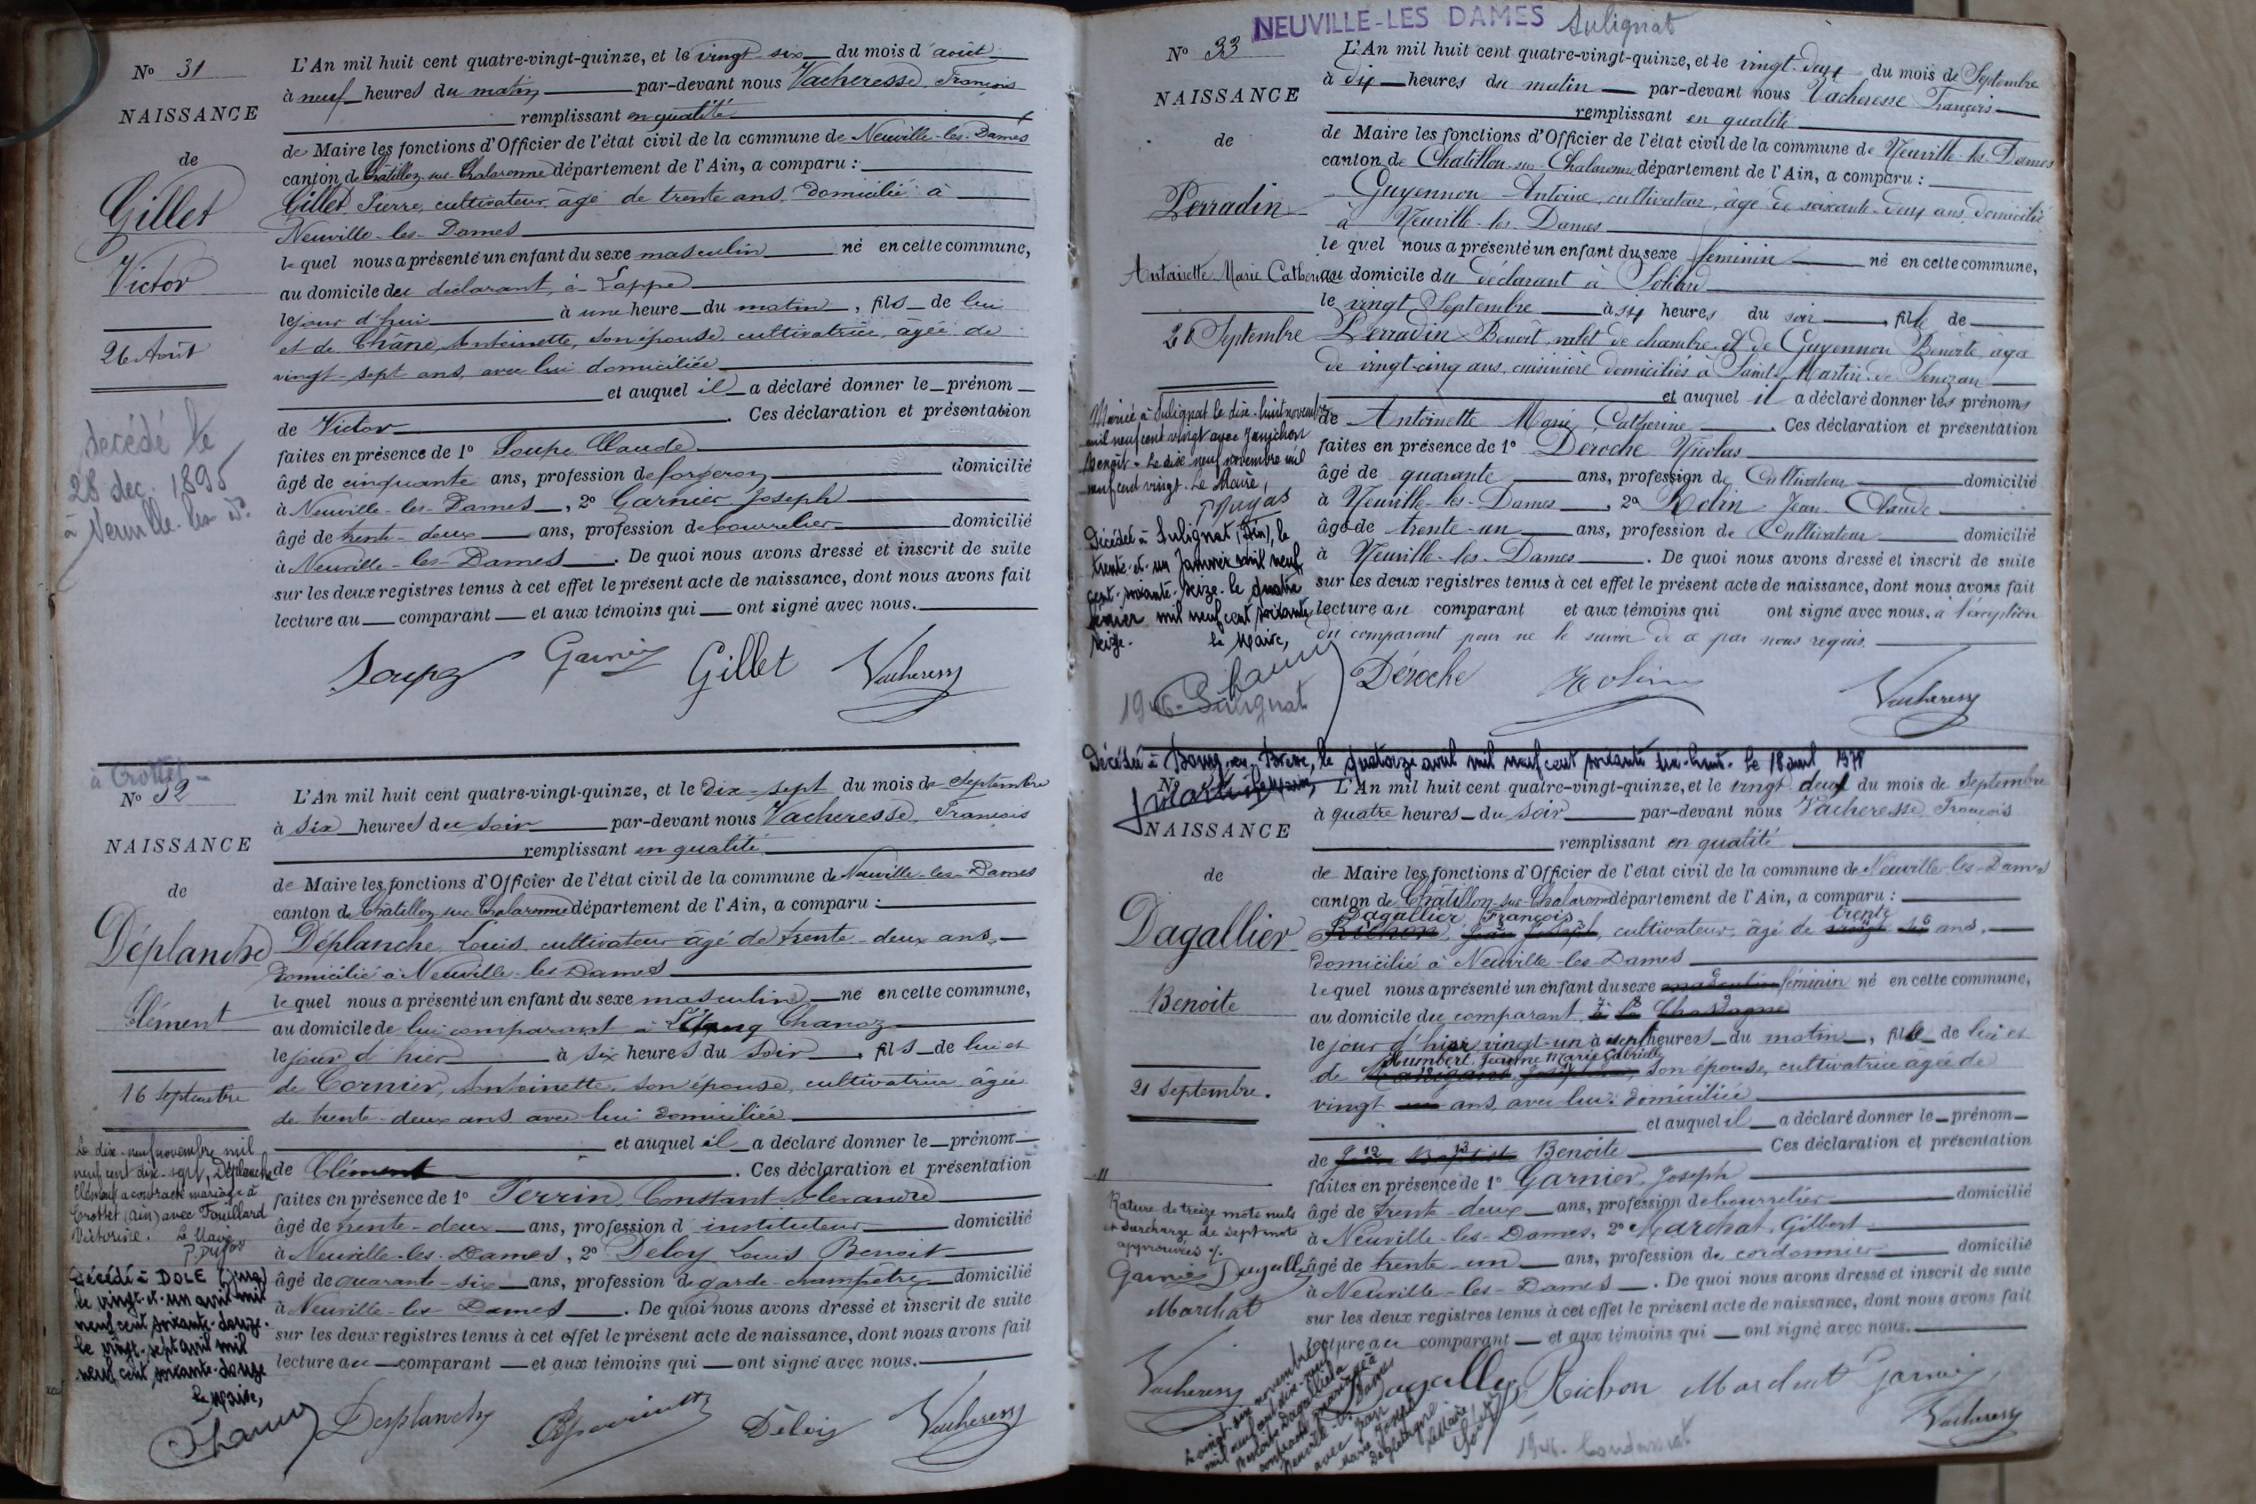 No 31
NAISSANCE
de
Gillet
Victor
26 Août
décédé le
28 dec. 1895
à Neuville-les-D.
L'An mil huit cent quatre-vingt-quinze, et le vingt six du mois d'août
à neuf heures du matin par-devant nous Vacheresse François
remplissant en qualité
de Maire les fonctions d'Officier de l'état civil de la commune de Neuville-les-Dames
canton de Châtillon-sur-Chalaronne département de l'Ain, a comparu :
Gillet Pierre, cultivateur âgé de trente ans domicilié à
Neuville-les-Dames
le quel nous a présenté un enfant du sexe masculin né en cette commune,
au domicile du déclarant, à Lappe
le jour d'hui à une heure du matin, fils de lui
et de Chane, Antoinette, son épouse, cultivatrice, âgée de
vingt-sept ans, avec lui domiciliée
et auquel il a déclaré donner le prénom
de Victor. Ces déclaration et présentation
faites en présence de 1° Soupe Claude
âgé de cinquante ans, profession de forgeron domicilié
à Neuville-les-Dames, 2° Garnier Joseph
âgé de trente-deux ans, profession de bourrelier domicilié
à Neuville-les-Dames. De quoi nous avons dressé et inscrit de suite
sur les deux registres tenus à cet effet le présent acte de naissance, dont nous avons fait
lecture au comparant et aux témoins qui ont signé avec nous.
Soupe Garnier Gillet Vacheresse
à Crottet
No 32
NAISSANCE
de
Déplanche
Clément
16 Septembre
Le dix-neuf novembre mil
neuf cent dix-sept, Déplanche
Clément a contracté mariage à
Crottet (Ain) avec Fouillard
Victorine. Le Maire
Décédé à DOLE (Jura)
le vingt-et-un avril mil
neuf cent soixante-douze.
le vingt-sept avril mil
neuf cent soixante-douze
Le Maire,
L'An mil huit cent quatre-vingt-quinze, et le dix-sept du mois de Septembre
à six heures du soir par-devant nous Vacheresse François
remplissant en qualité
de Maire les fonctions d'Officier de l'état civil de la commune de Neuville-les-Dames
canton de Châtillon-sur-Chalaronne département de l'Ain, a comparu :
Déplanche Louis cultivateur âgé de trente-deux ans,
domicilié à Neuville-les-Dames
le quel nous a présenté un enfant du sexe masculin né en cette commune,
au domicile de lui comparant à l'Etang Chanoz
le jour d'hier à six heures du soir, fils de lui et
de Cornier, Antoinette, son épouse, cultivatrice âgée
de trente-deux ans avec lui domiciliée
et auquel il a déclaré donner le prénom
de Clément. Ces déclaration et présentation
faites en présence de 1° Perrin Constant Alexandre
âgé de trente-deux ans, profession d'instituteur domicilié
à Neuville-les-Dames, 2° Deloy Louis Benoit
âgé de quarante-six ans, profession de garde-champêtre domicilié
à Neuville-les-Dames. De quoi nous avons dressé et inscrit de suite
sur les deux registres tenus à cet effet le présent acte de naissance, dont nous avons fait
lecture au comparant et aux témoins qui ont signé avec nous.
Desplanche Déloy Vacheresse
NEUVILLE-LES DAMES Sulignat
No 33
NAISSANCE
de
Perradin
Antoinette Marie Catherine
20 Septembre
Mariée à Sulignat le dix-huit novembre
mil neuf cent vingt avec Janichon
Benoît. Le dix neuf novembre mil
neuf cent vingt. Le Maire,
Décédée à Sulignat (Ain), le
trente-et-un Janvier mil neuf
cent-soixante-seize. le quatre
février mil neuf cent soixante
seize. le Maire,
1946. Sulignat
L'An mil huit cent quatre-vingt-quinze, et le vingt-deux du mois de Septembre
à dix heures du matin par-devant nous Vacheresse François
remplissant en qualité
de Maire les fonctions d'Officier de l'état civil de la commune de Neuville-les-Dames
canton de Châtillon-sur-Chalaronne département de l'Ain, a comparu :
Guyennon Antoine, cultivateur, âgé de soixante-deux ans, domicilié
à Neuville-les-Dames
le quel nous a présenté un enfant du sexe féminin né en cette commune,
au domicile du déclarant à
le vingt Septembre à six heures du soir, fille de
Perradin Benoît, valet de chambre et de Guyennon Benoite, âgée
de vingt-cinq ans, cuisinière domiciliés à Saint-Martin-de-Senozan
et auquel il a déclaré donner les prénoms
de Antoinette Marie Catherine. Ces déclaration et présentation
faites en présence de 1° Deroche Nicolas
âgé de quarante ans, profession de Cultivateur domicilié
à Neuville-les-Dames, 2° Rolin Jean Claude
âgé de trente-un ans, profession de Cultivateur domicilié
à Neuville-les-Dames. De quoi nous avons dressé et inscrit de suite
sur les deux registres tenus à cet effet le présent acte de naissance, dont nous avons fait
lecture au comparant et aux témoins qui ont signé avec nous. à l'exception
du comparant pour ne le savoir de ce par nous requis.
Déroche Rolin Vacheresse
Décédée à Bourg-en-Bresse, le quatorze avril mil neuf cent soixante dix-huit. Le 18 avril 1978
No
NAISSANCE
de
Dagallier
Benoite
21 Septembre.
Rature de treize mots nuls
et surcharge de sept mots
approuvées
Garnier Dagallier
Marchat
Vacheresse
L'An mil huit cent quatre-vingt-quinze, et le vingt deux du mois de Septembre
à quatre heures du soir par-devant nous Vacheresse François
remplissant en qualité
de Maire les fonctions d'Officier de l'état civil de la commune de Neuville-les-Dames
canton de Châtillon-sur-Chalaronne département de l'Ain, a comparu :
Dagallier François trente
Richon, Jean Joseph, cultivateur, âgé de vingt six ans,
domicilié à Neuville-les-Dames
le quel nous a présenté un enfant du sexe masculin féminin né en cette commune,
au domicile du comparant, à la Chastagne
le jour d'hier vingt-un à sept heures du matin, fille de lui et
Humbert, Jeanne Marie Gabrielle
de son épouse, cultivatrice âgée de
vingt ans, avec lui domiciliée
et auquel il a déclaré donner le prénom
de Jean Baptiste Benoite Ces déclaration et présentation
faites en présence de 1° Garnier Joseph
âgé de trente-deux ans, profession de bourrelier domicilié
à Neuville-les-Dames, 2° Marchat, Gilbert
âgé de trente-un ans, profession de cordonnier domicilié
à Neuville-les-Dames. De quoi nous avons dressé et inscrit de suite
sur les deux registres tenus à cet effet le présent acte de naissance, dont nous avons fait
lecture au comparant et aux témoins qui ont signé avec nous.
Dagallier Richon Marchat Garnier
Vacheresse
Le vingt-six novembre
mil neuf cent dix-neuf
Benoite Dagallier a
contracté mariage à
Neuville-les-Dames
avec Jean
Marie Joseph
le Maire
1946. Condeissiat